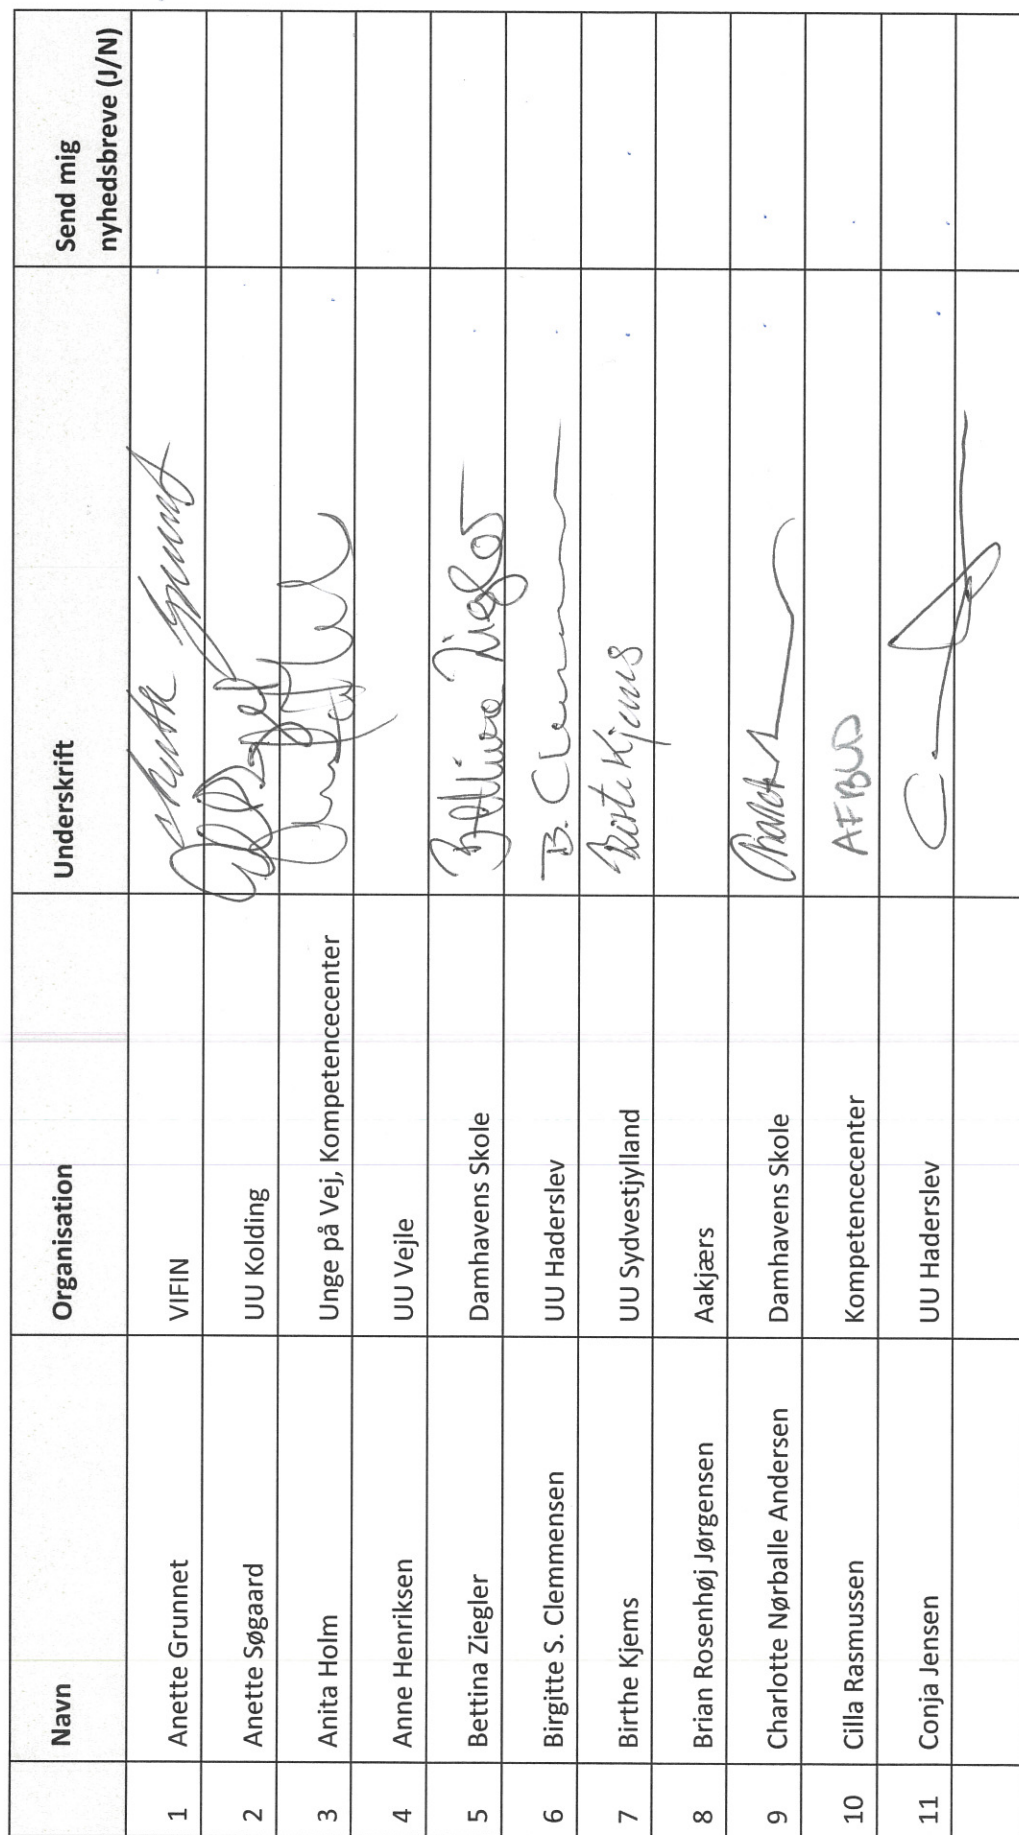 Navn Organisation Underskrift Send mig nyhedsbreve (J/N)
1 Anette Grunnet VIFIN
2 Anette Søgaard UU Kolding
3 Anita Holm Unge på Vej, Kompetencecenter
4 Anne Henriksen UU Vejle
5 Bettina Ziegler Damhavens Skole Bettina Ziegler
6 Birgitte S. Clemmensen UU Haderslev B. Clemmensen
7 Birthe Kjems UU Sydvestjylland Birthe Kjems
8 Brian Rosenhøj Jørgensen Aakjærs
9 Charlotte Nørballe Andersen Damhavens Skole
10 Cilla Rasmussen Kompetencecenter AFBUD
11 Conja Jensen UU Haderslev